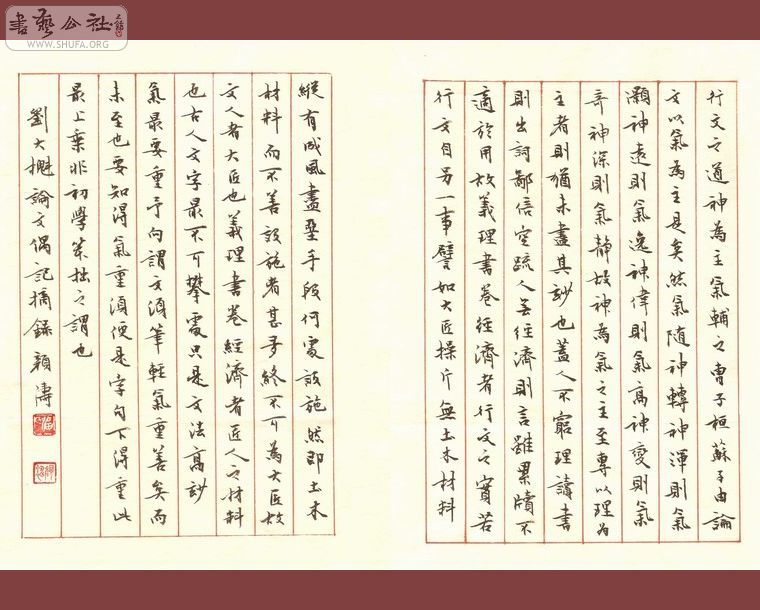 書藝公社
WWW.SHUFA.ORG
行文之道神為主氣輔之曹子桓蘇子由論
文以氣為主是矣然氣隨神轉神渾則氣
灝神遠則氣逸神偉則氣高神變則氣
奇神深則氣靜故神為氣之主至專以理為
主者則猶未盡其妙也蓋人不窮理讀書
則出詞鄙倍空疏人無經濟則言雖累牘不
適於用故義理書卷經濟者行文之實若
行文自另一事譬如大匠操斤無土木材料
縱有成風盡堊手段何處設施然即土木
材料而不善設施者甚多終不可為大匠故
文人者大匠也義理書卷經濟者匠人之材料
也古人文字最不可攀處只是文法高妙
氣最要重予向謂文須筆輕氣重善矣而
未至也要知得氣重須便是字句下得重此
最上乘非初學笨拙之謂也
劉大櫆論文偶記摘錄 穎濤